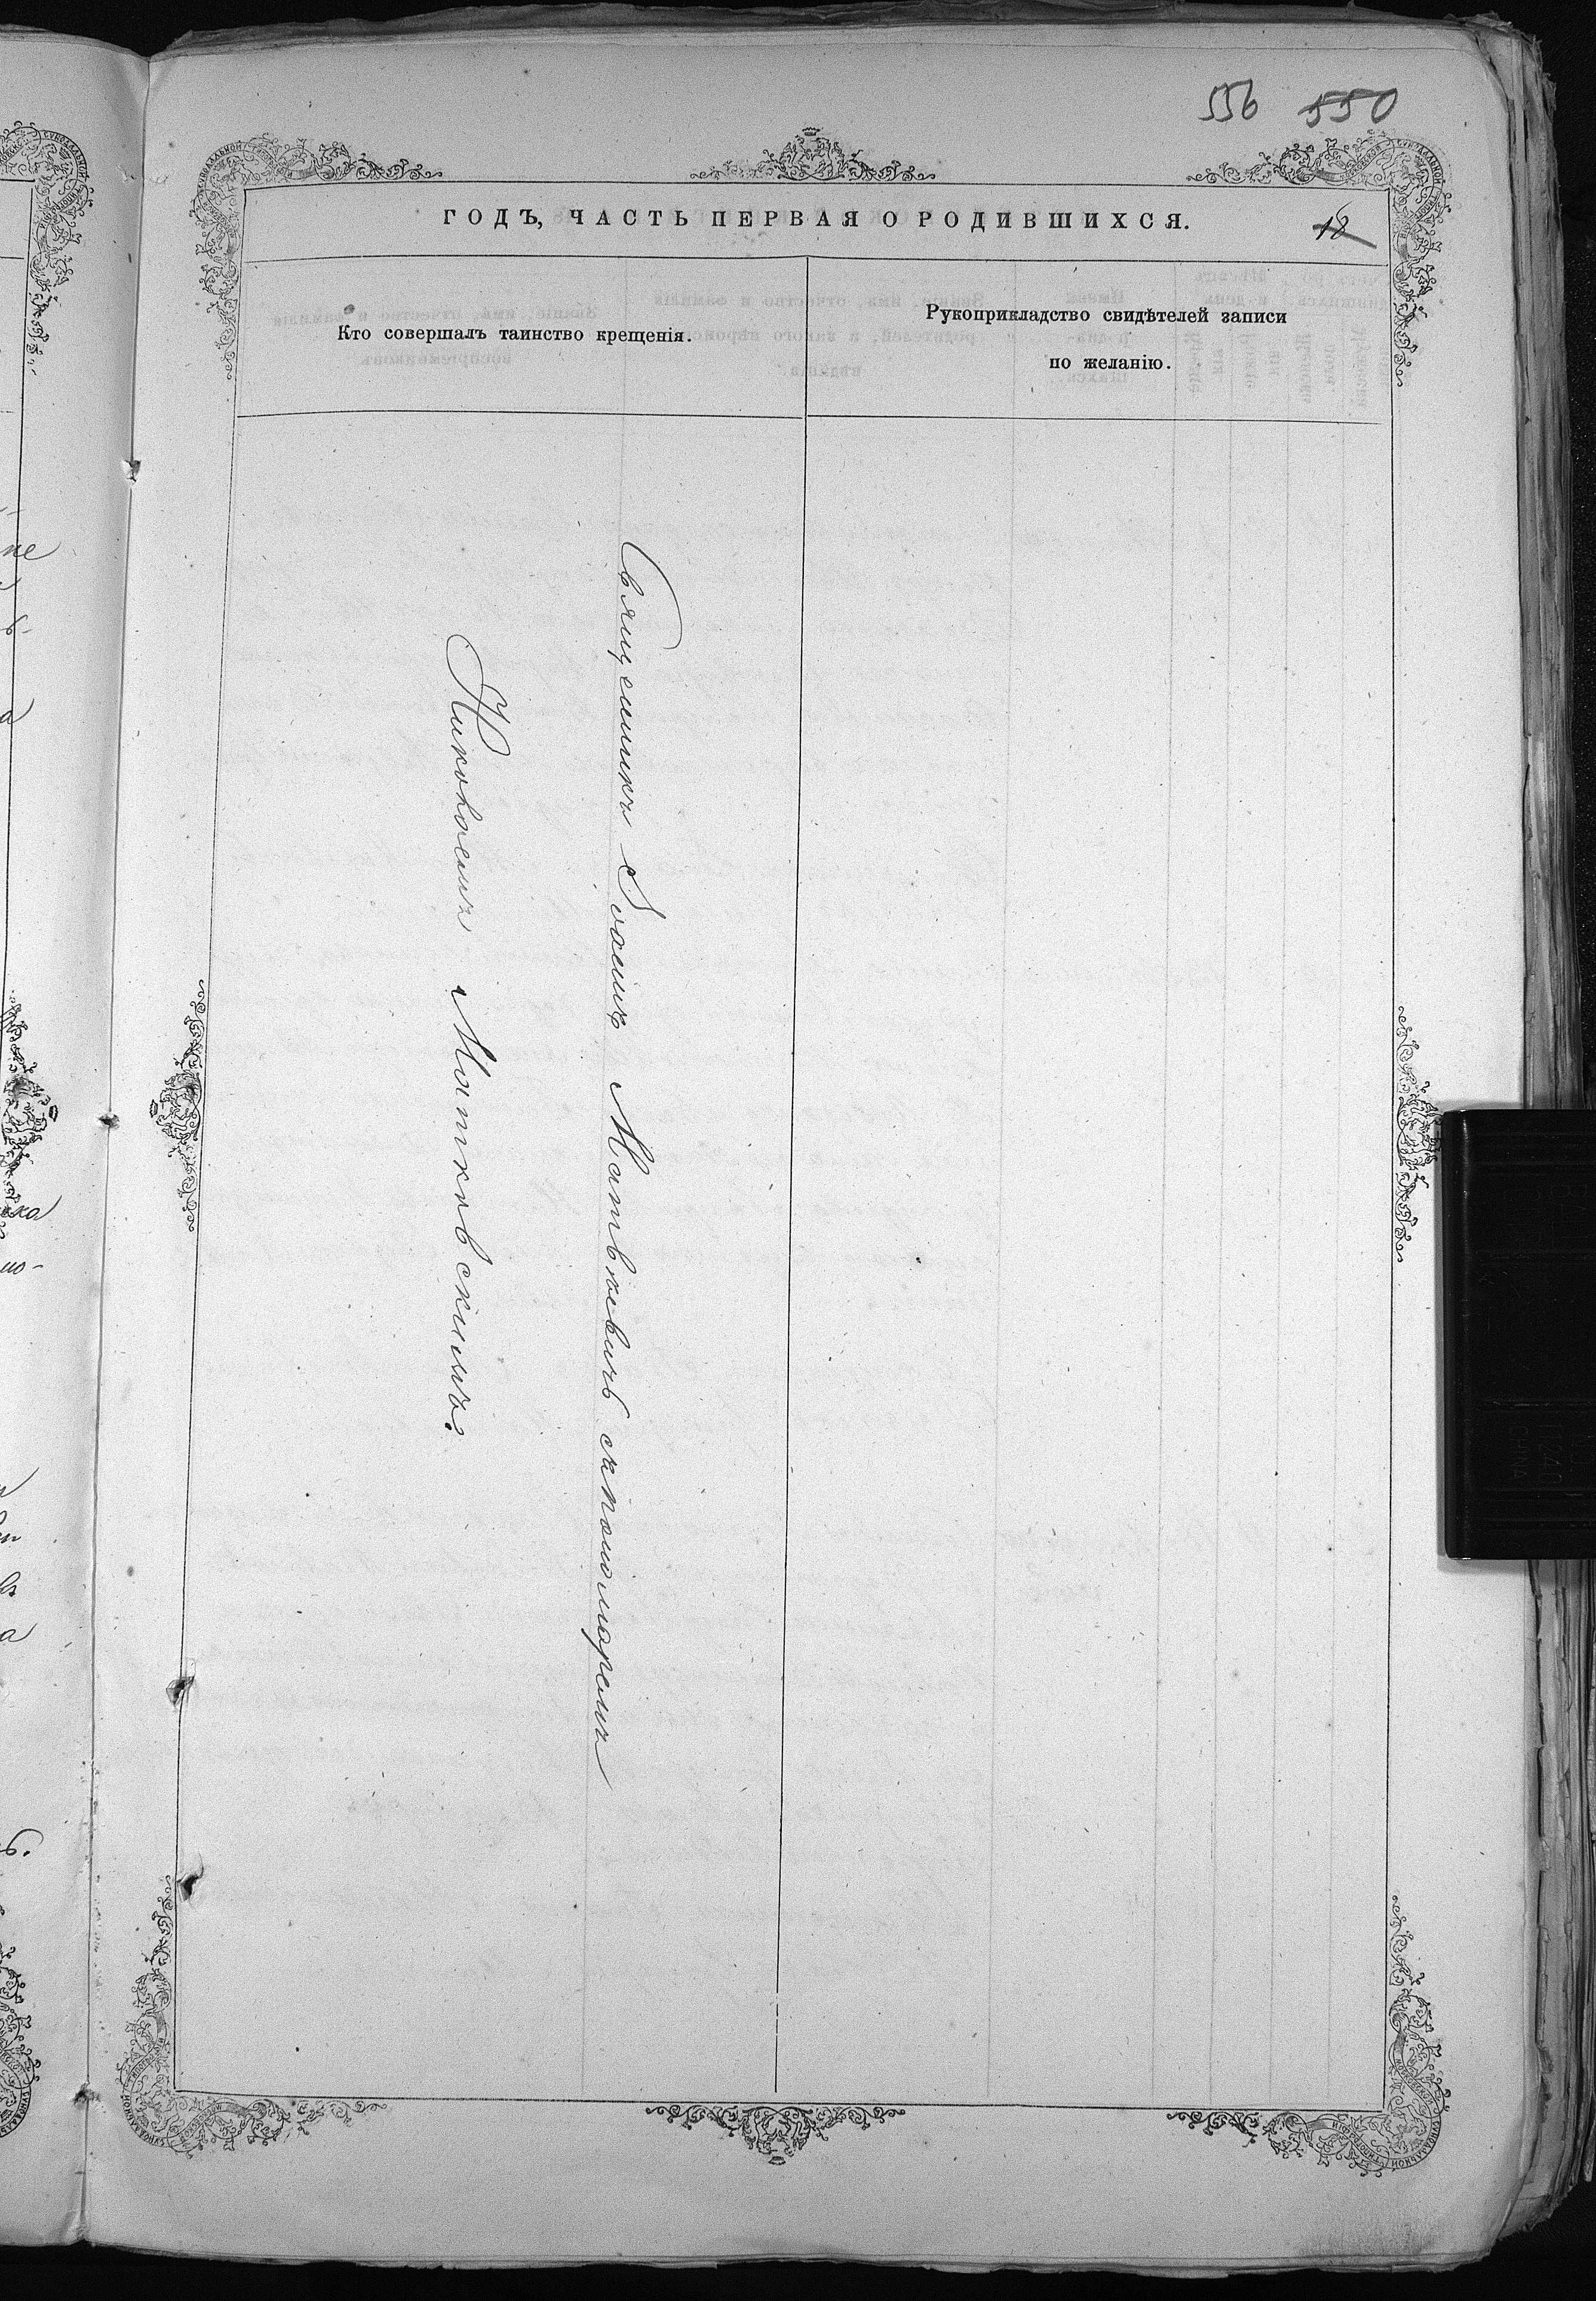 556 550
ГОДЪ, ЧАСТЬ ПЕРВАЯ О РОДИВШИХСЯ.
18
Кто совершалъ таинство крещенія.
Рукоприкладство свидѣтелей записи
по желанію.
Священникъ Іоаннъ Матвѣевичъ съ пономаремъ
Николаемъ Матковскимъ.